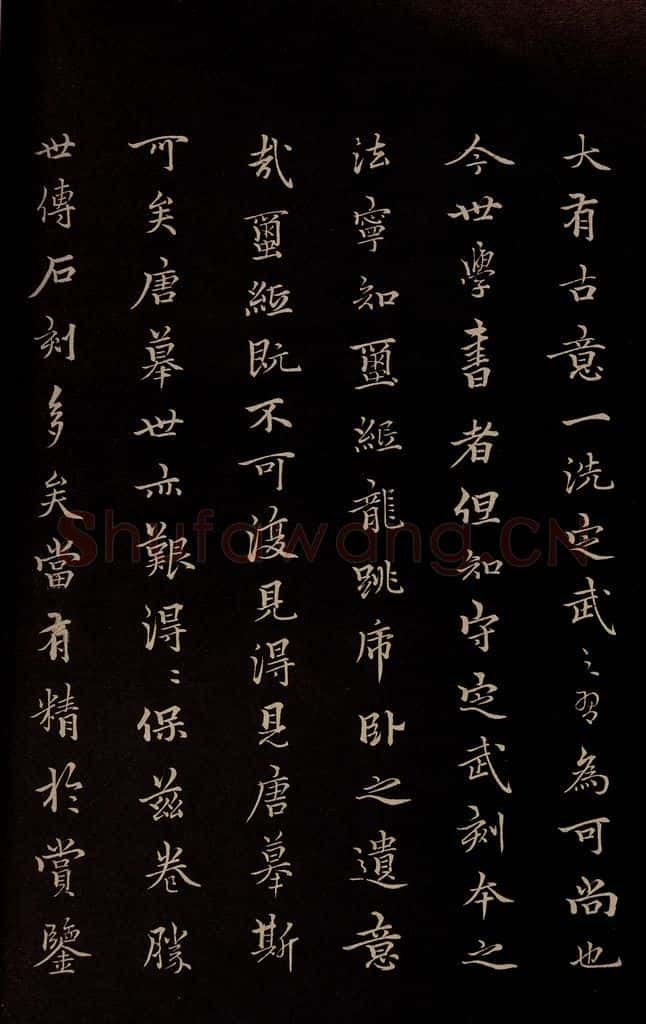 大有古意一洗定武之習為可尚也
今世學書者但知守定武刻本之
法寧知璽紙龍跳虎卧之遺意
哉璽紙既不可復見得見唐摹斯
可矣唐摹世亦艱得〻保茲卷勝
世傳石刻多矣當有精於賞鑒
Shufawang.CN